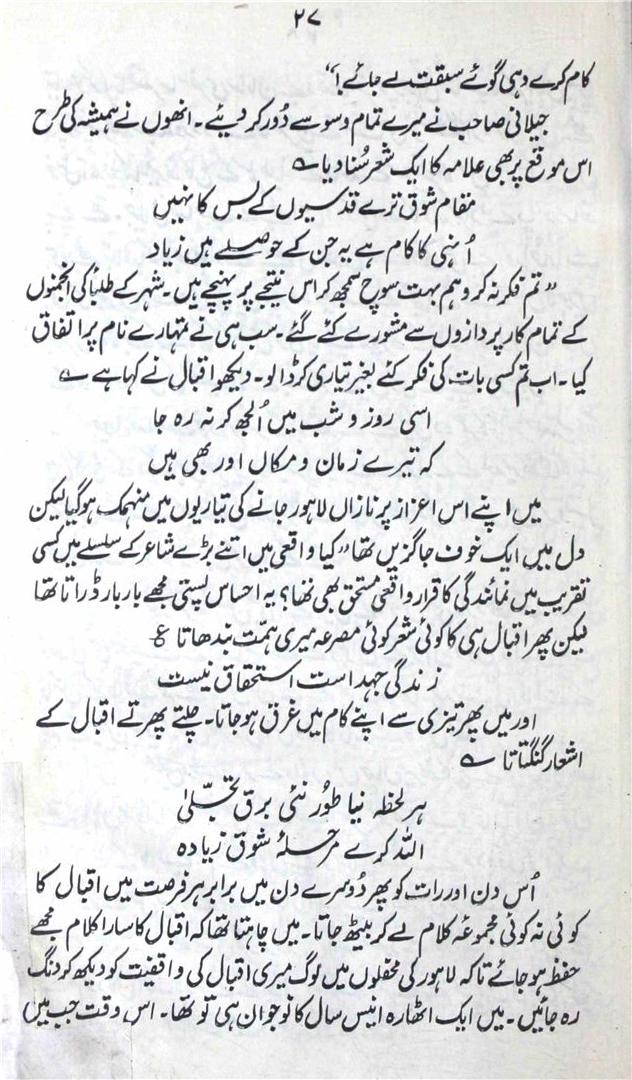 ۲۷
کام کرے وہی گوئے سبقت لے جائے!“
جیلانی صاحب نے میرے تمام وسوسے دُور کر دیئے۔ انھوں نے ہمیشہ کی طرح
اس موقع پر بھی علامہ کا ایک شعر سُنا دیا ؎
مقام شوق ترے قدسیوں کے بس کا نہیں
اُنہی کا کام ہے یہ جن کے حوصلے ہیں زیاد
”تم فکر نہ کرو ہم بہت سوچ سمجھ کر اس نتیجے پر پہنچے ہیں۔ شہر کے طلبأ کی انجمنوں
کے تمام کار پردازوں سے مشورے کئے گئے۔ سب ہی نے تمہارے نام پر اتفاق
کیا۔ اب تم کسی بات کی فکر کئے بغیر تیاری کر ڈالو۔ دیکھو اقبال نے کہا ہے ؎
اسی روز و شب میں اُلجھ کر نہ رہ جا
کہ تیرے زمان و مکاں اور بھی ہیں
میں اپنے اس اعزاز پر نازاں لاہور جانے کی تیاریوں میں منہمک ہو گیا لیکن
دل میں ایک خوف جاگزیں تھا ”کیا واقعی میں اتنے بڑے شاعر کے سلسلے میں کسی
تقریب میں نمائندگی کا قرار واقعی مستحق بھی تھا؟ یہ احساس پستی مجھے بار بار ڈراتا تھا
لیکن پھر اقبال ہی کا کوئی شعر کوئی مصرعہ میری ہمّت بندھاتا ع
زندگی جہد است استحقاق نیست
اور میں پھر تیزی سے اپنے کام میں غرق ہو جاتا۔ چلتے پھرتے اقبال کے
اشعار گنگناتا ؎
ہر لحظہ نیا طُور نئی برق تجلّیٰ
اللہ کرے مرحلۂ شوق زیادہ
اُس دن اور رات کو پھر دُوسرے دن میں برابر ہر فرصت میں اقبال کا
کوئی نہ کوئی مجموعۂ کلام لے کر بیٹھ جاتا۔ میں چاہتا تھا کہ اقبال کا سارا کلام مجھے
حفظ ہو جائے تاکہ لاہور کی محفلوں میں لوگ میری اقبال کی واقفیت کو دیکھ کر دنگ
رہ جائیں۔ میں ایک اٹھارہ انیس سال کا نوجوان ہی تو تھا۔ اس وقت جب میں